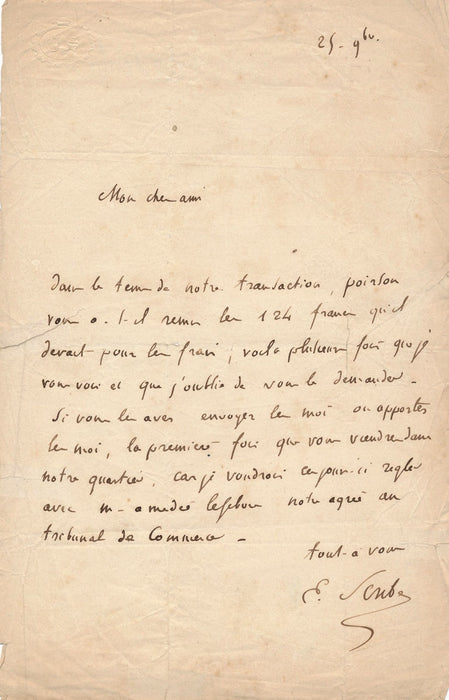 25 - 9bre.
Mon cher ami
dans le tems de notre transaction, poirson
vous a-t-il remis les 124 francs qu'il
devait pour les frais ; voila plusieurs fois que je
vous vois et que j'oublie de vous le demander -
Si vous les avez envoyez les moi ou apportez
les moi, la premiere fois que vous viendrez dans
notre quartier, car je voudrois ces jours-ci regler
avec m- amedée lefebvre notre agréé au
tribunal de Commerce -
tout-a vous
E. Scribe